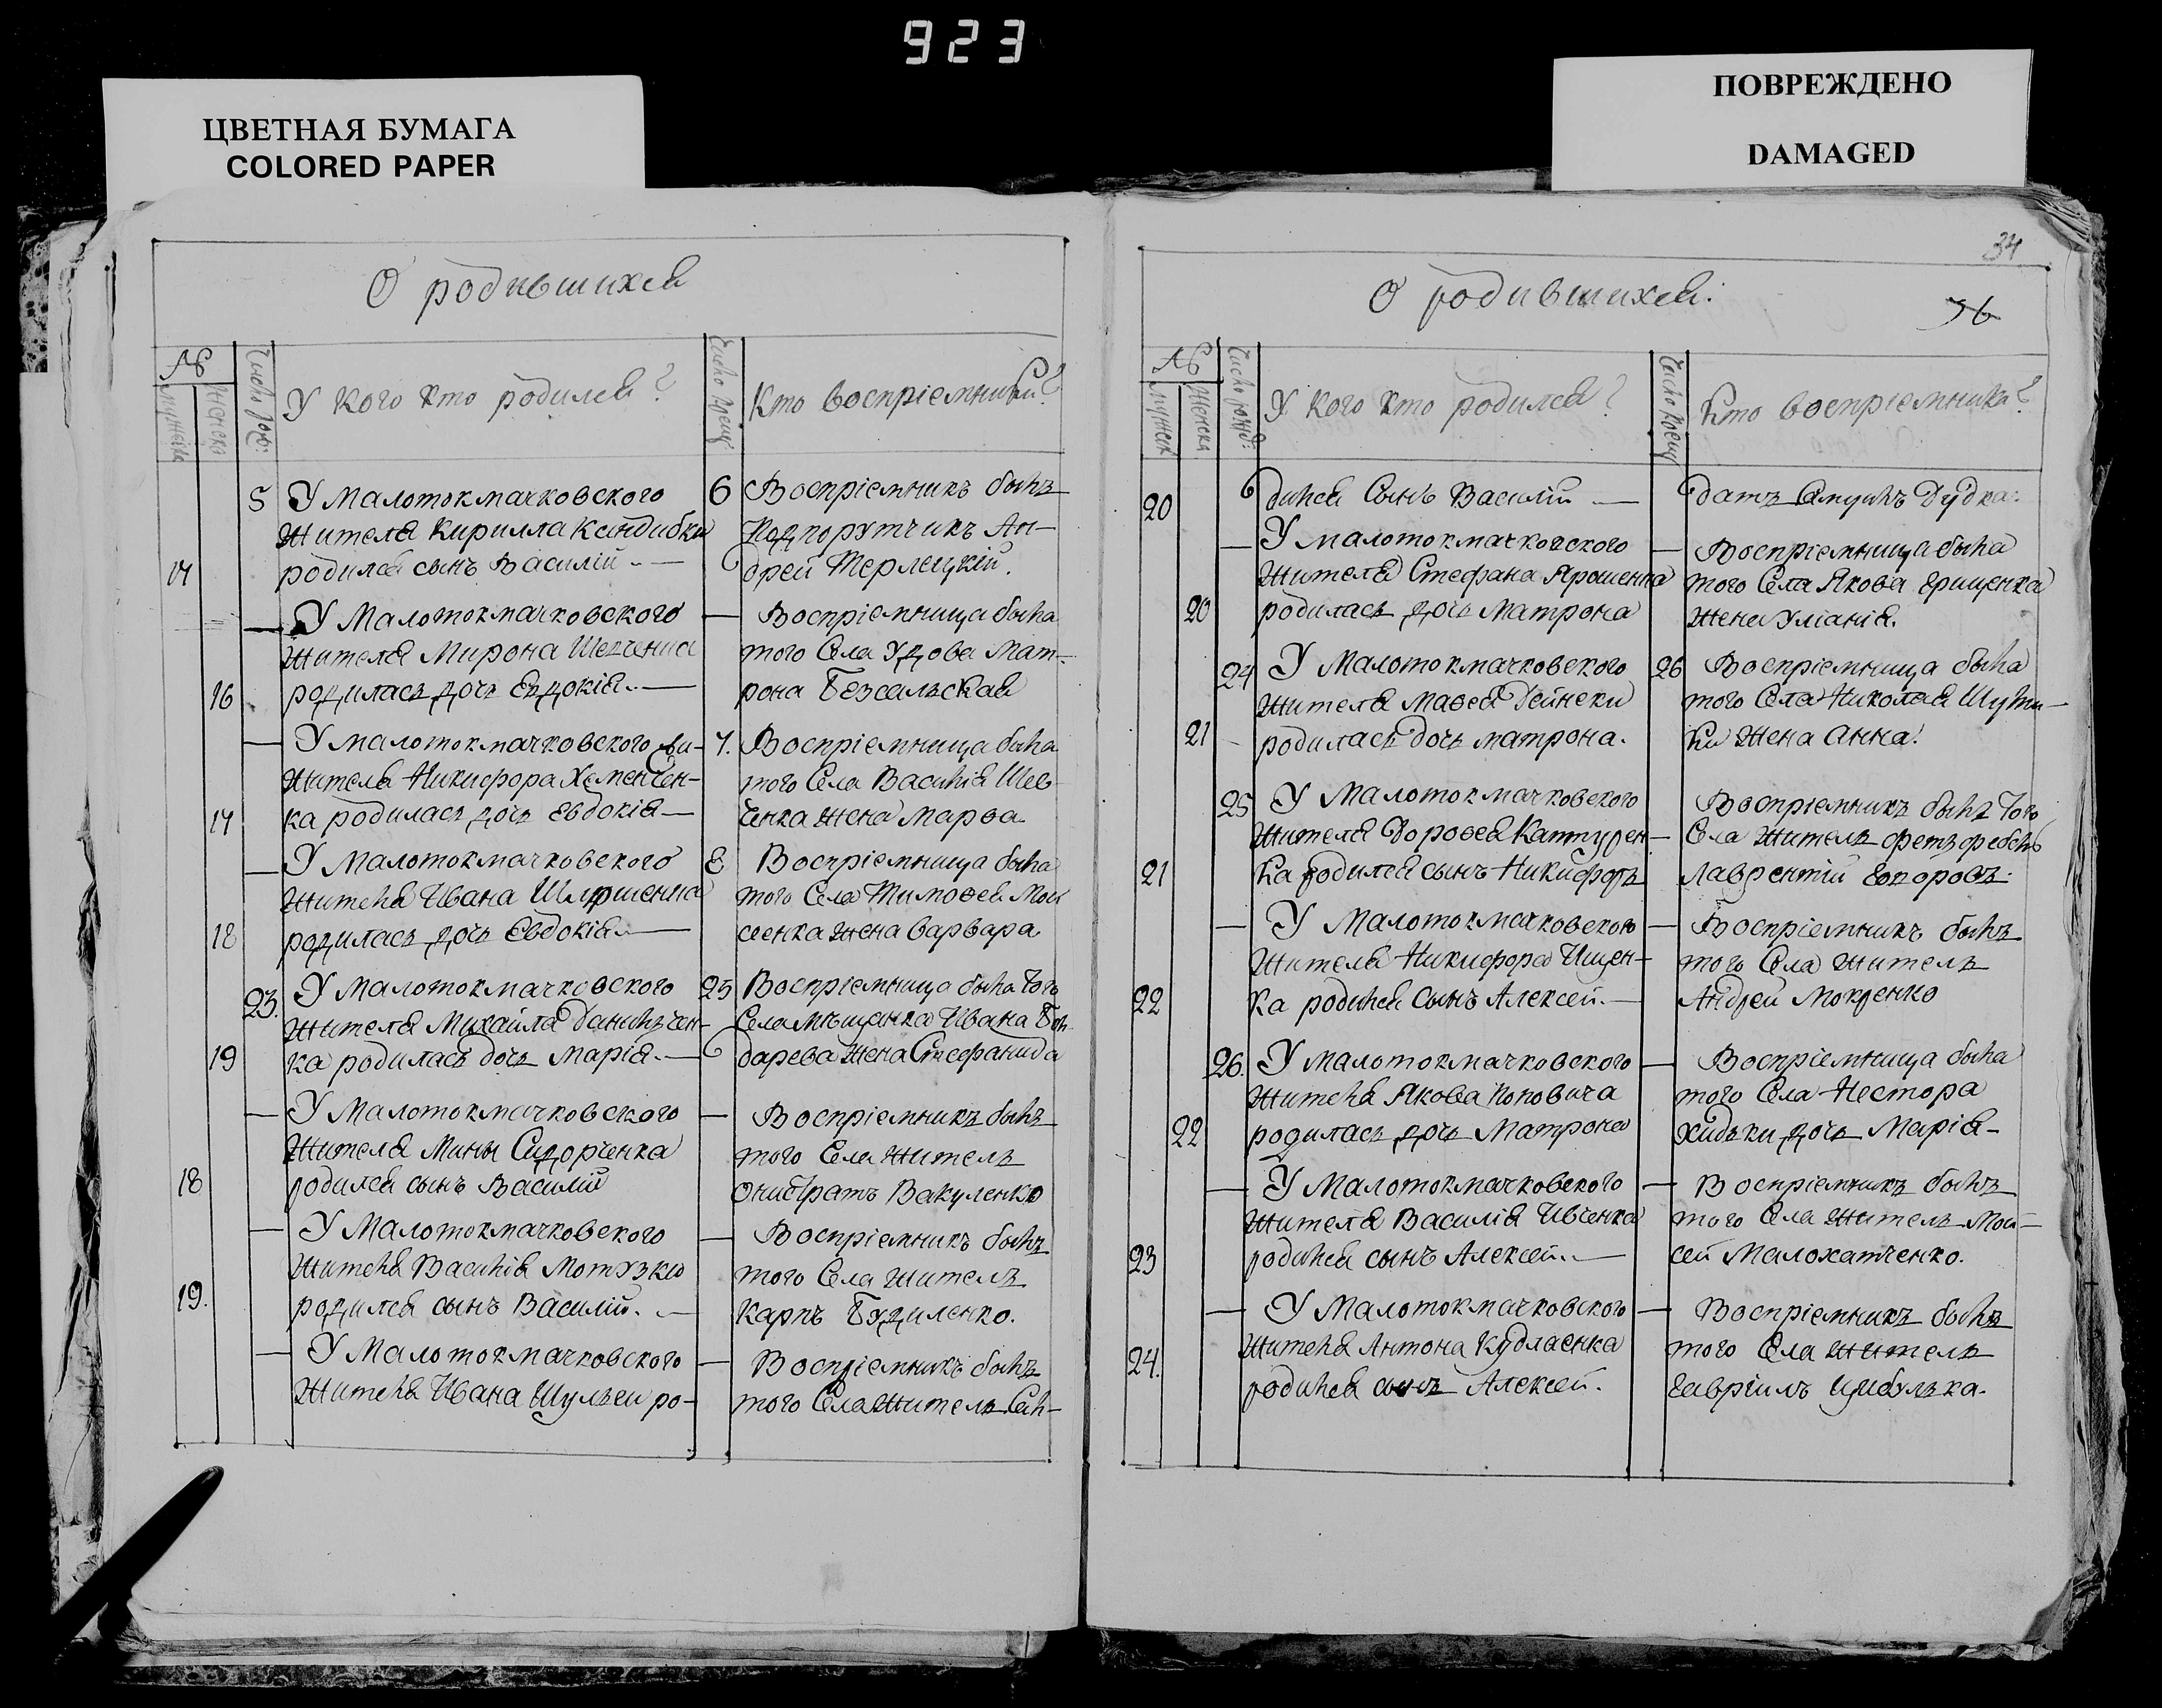 923
ЦВЕТНАЯ БУМАГА
COLORED PAPER
ПОВРЕЖДЕНО
DAMAGED
О родившихся
№
Число рож:
У кого кто родился?
Число крещ:
Кто восприемники?
мужеска
женска
5 У Малотокмачковского
Жителя Кирилла Кандибки
17 родился сынъ Василій
6 Воспріемникъ былъ
Подпорутчикъ Ан-
дрей Терлецкій.
— У Малотокмачковского
Жителя Мирона Шевченка
16 родилась дочь Евдокія
— Воспріемница была
того Села Удова Мат-
рона Безсальская
— У Малотокмачковского
Жителя Никифора Хеменчен-
17 ка родилась дочь Евдокія
7. Воспріемница была
того Села Василія Шев-
ченка жена Марѳа
— У Малотокмачковского
Жителя Ивана
18 родилась дочь Евдокія
8 Воспріемница была
того Села Тимоѳея Мои
сеенка жена Варвара
23. У Малотокмачковского
Жителя Михайла Данильчен-
19 ка родилась дочь Марія
25 Воспріемница была того
Села мѣщанка Ивана Бон
дарева жена Стефанида
— У Малотокмачковского
Жителя Мины Сидорченка
18 родился сынъ Василій
— Воспріемникъ былъ
того Села Житель
Онисратъ Вакуленко
— У Малотокмачковского
Жителя Василія Мотузки
19. родился сынъ Василій.
— Воспріемникъ былъ
того Села Житель
Карпъ Будиленко.
— У Малотокмачковского
Жителя Ивана Шульги ро-
— Воспріемникъ былъ
того Села Житель Сал-
34
О родившихся:
№
мужеск
женска
Число рожд:
У кого кто родился?
Число крещ
Кто воспріемники?
20 дился Сынъ Василій
датъ Самуилъ Дудка.
— У Малотокмачковского
Жителя Стефана Ярошенка
20 родилась дочь Матрона
— Воспріемница была
того Села Якова Грищенка
жена Уліанія.
24 У Малотокмачковского
Жителя Маѳея Дейнеки
21 родилась дочь Матрона.
26 Воспріемница была
того Села Николая Шути-
ки жена Анна.
25 У Малотокмачковского
Жителя Дороѳея Каптурен-
21 ка родился сынъ Никифоръ
Воспріемникъ былъ того
Села Житель фетфебель
Лаврентій
— У Малотокмачковского
Жителя Никифора Ищен-
22 ка родился сынъ Алексей.
— Воспріемникъ былъ
того Села Житель
Андрей Мокренко
26. У Малотокмачковского
Жителя Якова Поповича
22 родилась дочь Матрона
— Воспріемница была
того Села Нестора
Хидьки дочь Марія
— У Малотокмачковского
Жителя Василія Ивченка
23 родился сынъ Алексей.
— Воспріемникъ былъ
того Села Житель Мои-
сей Малохатченко.
— У Малотокмачковского
Жителя Антона Кудлаенка
24. родился сынъ Алексей.
— Воспріемникъ былъ
того Села Житель
Гавріилъ Цибулька.